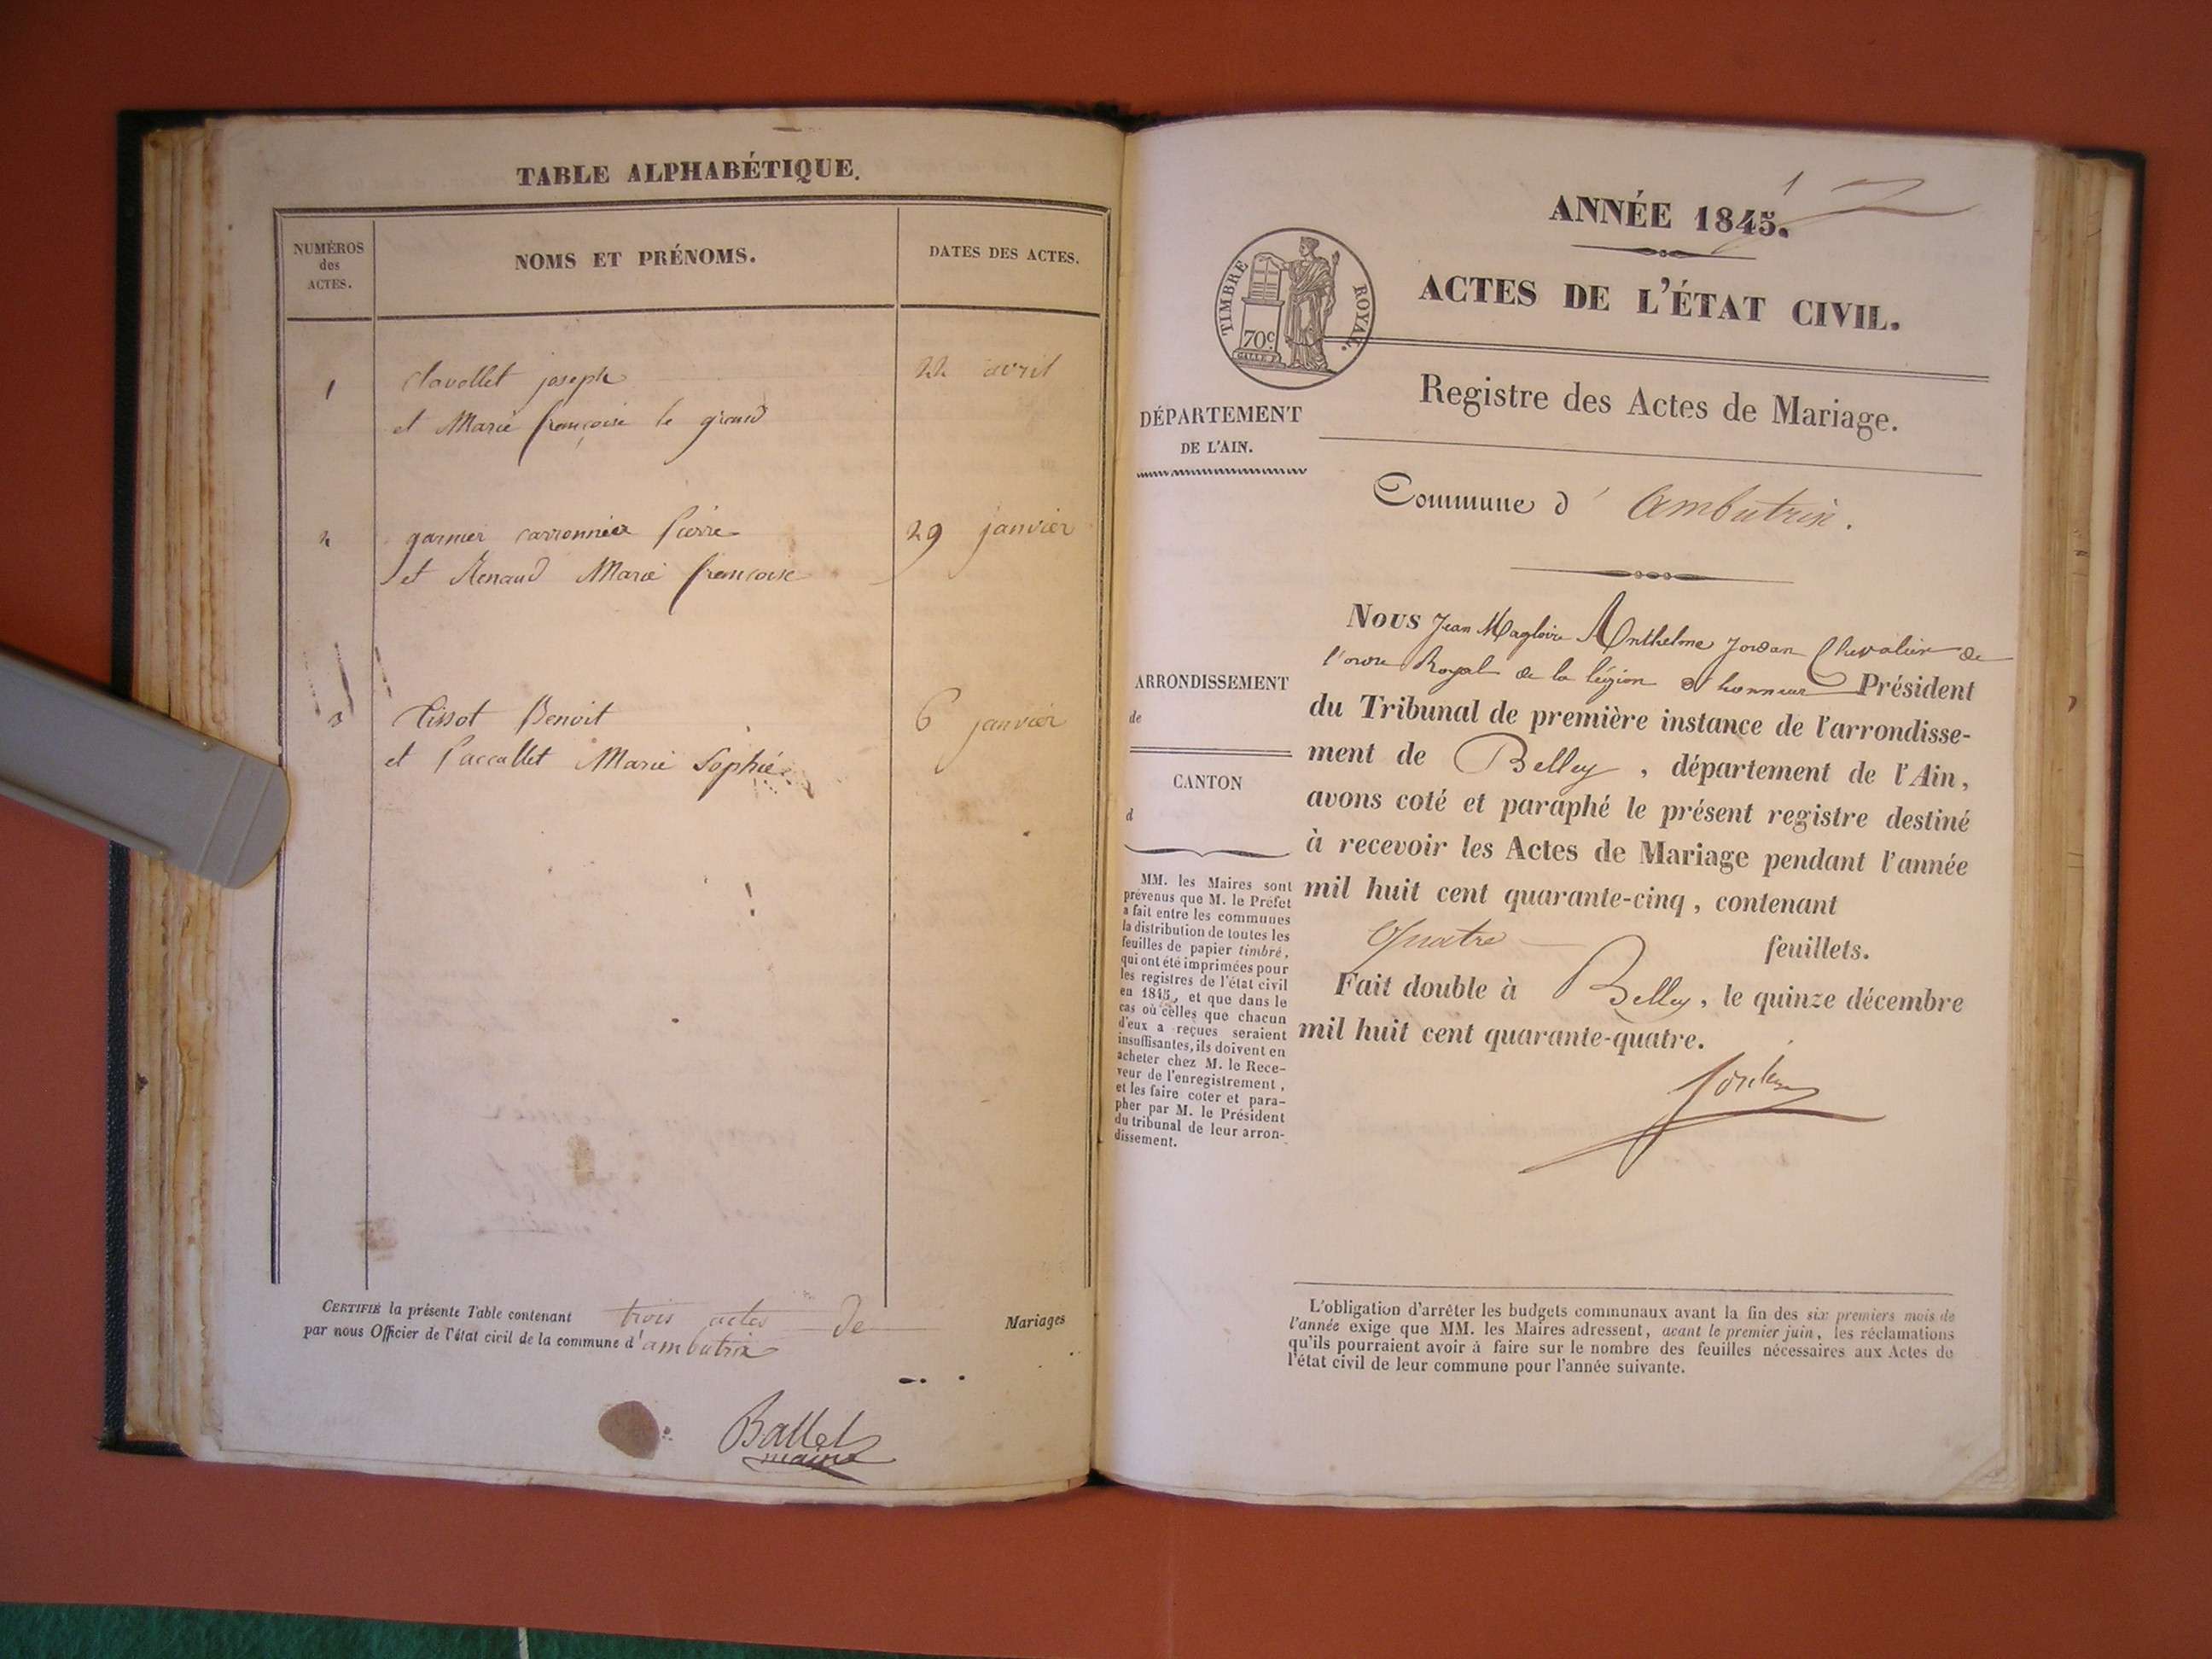 TABLE ALPHABÉTIQUE.
NUMÉROS
des
ACTES.
NOMS ET PRÉNOMS.
DATES DES ACTES.
1
Clavollet joseph
22 avril
et Marie françoise le grand
2
garnier carronnier Pierre
29 janvier
et Renaud Marie francoise
3
Tissot Benoit
6 janvier
et Paccallet Marie Sophie
CERTIFIÉ la présente Table contenant trois actes de Mariages
par nous Officier de l'état civil de la commune d'ambutrix
Ballet
maire
1
ANNÉE 1845.
TIMBRE ROYAL.
70c
ACTES DE L'ÉTAT CIVIL.
Registre des Actes de Mariage.
DÉPARTEMENT
DE L'AIN.
Commune d'Ambutrix.
ARRONDISSEMENT
de
CANTON
d
MM. les Maires sont
prévenus que M. le Préfet
a fait entre les communes
la distribution de toutes les
feuilles de papier timbré,
qui ont été imprimées pour
les registres de l'état civil
en 1845, et que dans le
cas où celles que chacun
d'eux a reçues seraient
insuffisantes, ils doivent en
acheter chez M. le Rece-
veur de l'enregistrement,
et les faire coter et para-
pher par M. le Président
du tribunal de leur arron-
dissement.
Nous Jean Magloire Anthelme Jordan Chevalier de
l'ordre Royal de la légion d'honneur Président
du Tribunal de première instance de l'arrondisse-
ment de Belley, département de l'Ain,
avons coté et paraphé le présent registre destiné
à recevoir les Actes de Mariage pendant l'année
mil huit cent quarante-cinq, contenant
Quatre feuillets.
Fait double à Belley, le quinze décembre
mil huit cent quarante-quatre.
Jordan
L'obligation d'arrêter les budgets communaux avant la fin des six premiers mois de
l'année exige que MM. les Maires adressent, avant le premier juin, les réclamations
qu'ils pourraient avoir à faire sur le nombre des feuilles nécessaires aux Actes de
l'état civil de leur commune pour l'année suivante.